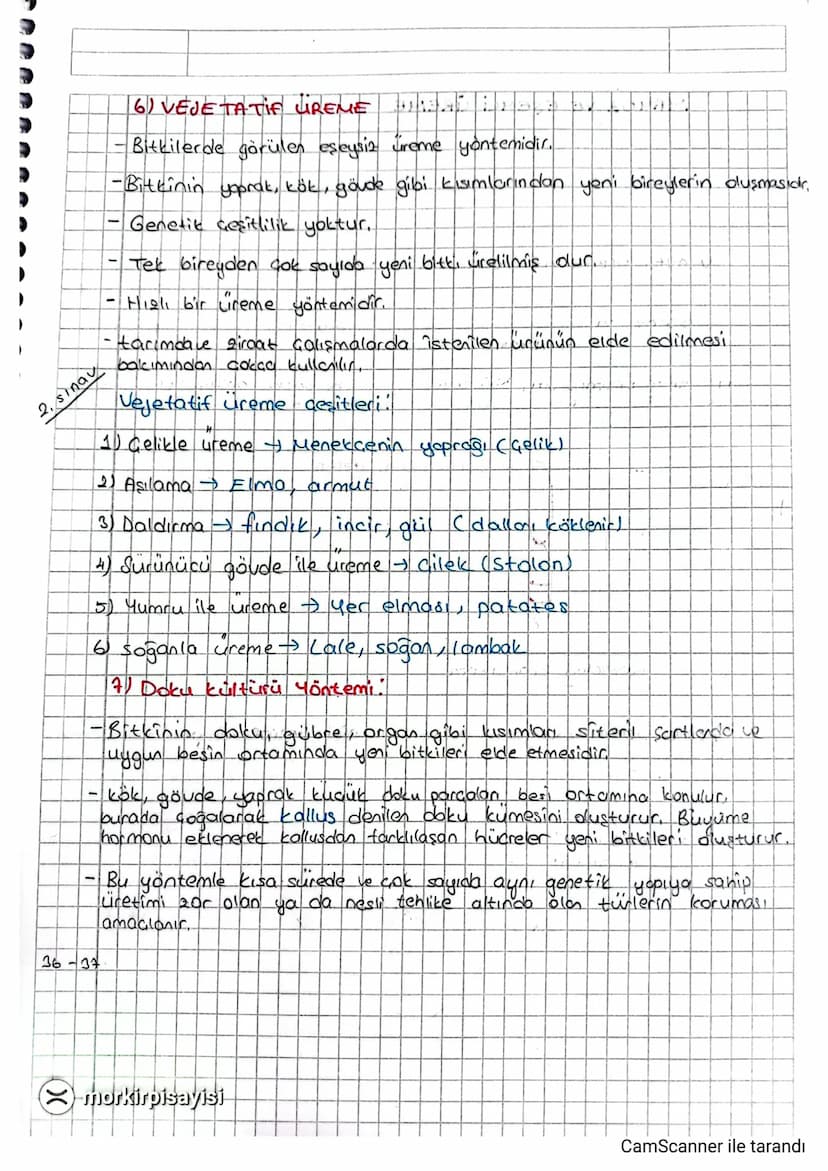 6) VEJETATİF ÜREME
- Bitkilerde görülen eşeysiz üreme yöntemidir.
- Bitkinin yaprak, kök, gövde gibi kısımlarından yeni bireylerin oluşmasıdır.
- Genetik çeşitlilik yoktur.
- Tek bireyden çok sayıda yeni bitki üretilmiş olur.
- Hızlı bir üreme yöntemidir.
- tarımda ve ziraat çalışmalarda istenilen ürünün elde edilmesi
bakımından çokça kullanılır.
2. sınav
Vejetatif üreme çeşitleri:
1) Çelikle üreme → Menekçenin yaprağı (Çelik)
2) Aşılama → Elma, armut
3) Daldırma → fındık, incir, gül (dalları köklenir)
4) Sürünücü gövde ile üreme → çilek (Stolon)
5) Yumru ile üreme → Yer elması, patates
6) soğanla üreme → Lale, soğan, zambak
7) Doku kültürü Yöntemi:
- Bitkinin doku, gübre, organ gibi kısımları siteril şartlarda ve
uygun besin ortamında yeni bitkileri elde etmesidir.
- kök, gövde, yaprak küçük doku parçaları besi ortamına konulur.
burada çoğalarak kallus denilen doku kümesini oluşturur. Büyüme
hormonu eklenerek kallusdan farklılaşan hücreler yeni bitkileri oluşturur.
- Bu yöntemle kısa sürede ve çok sayıda aynı genetik yapıya sahip
üretimi zor olan ya da nesli tehlike altında olan türlerin koruması
amaçlanır.
36 - 37
morkirpisayisi
CamScanner ile tarandı